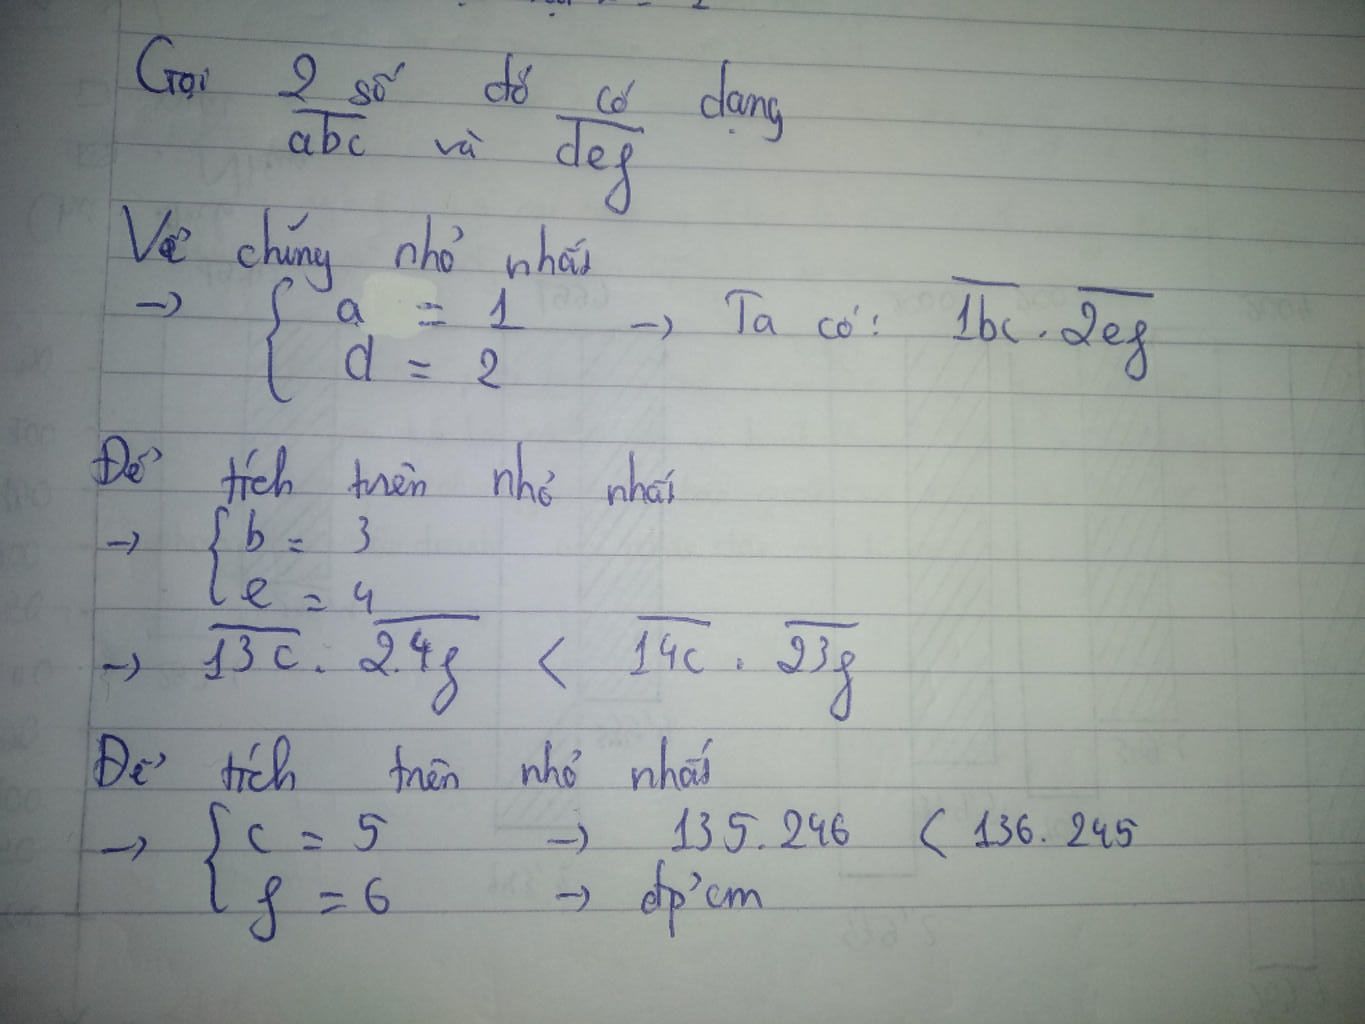 Gọi 2 số đó có dạng
abc và deg
Vì chúng nhỏ nhất
→ { a = 1 → Ta có: 1bc . 2eg
d = 2
Để tích trên nhỏ nhất
→ { b = 3
e = 4
→ 13c . 24g < 14c . 23g
Để tích trên nhỏ nhất
→ { c = 5 → 135 . 246 < 136 . 245
g = 6 → đpcm